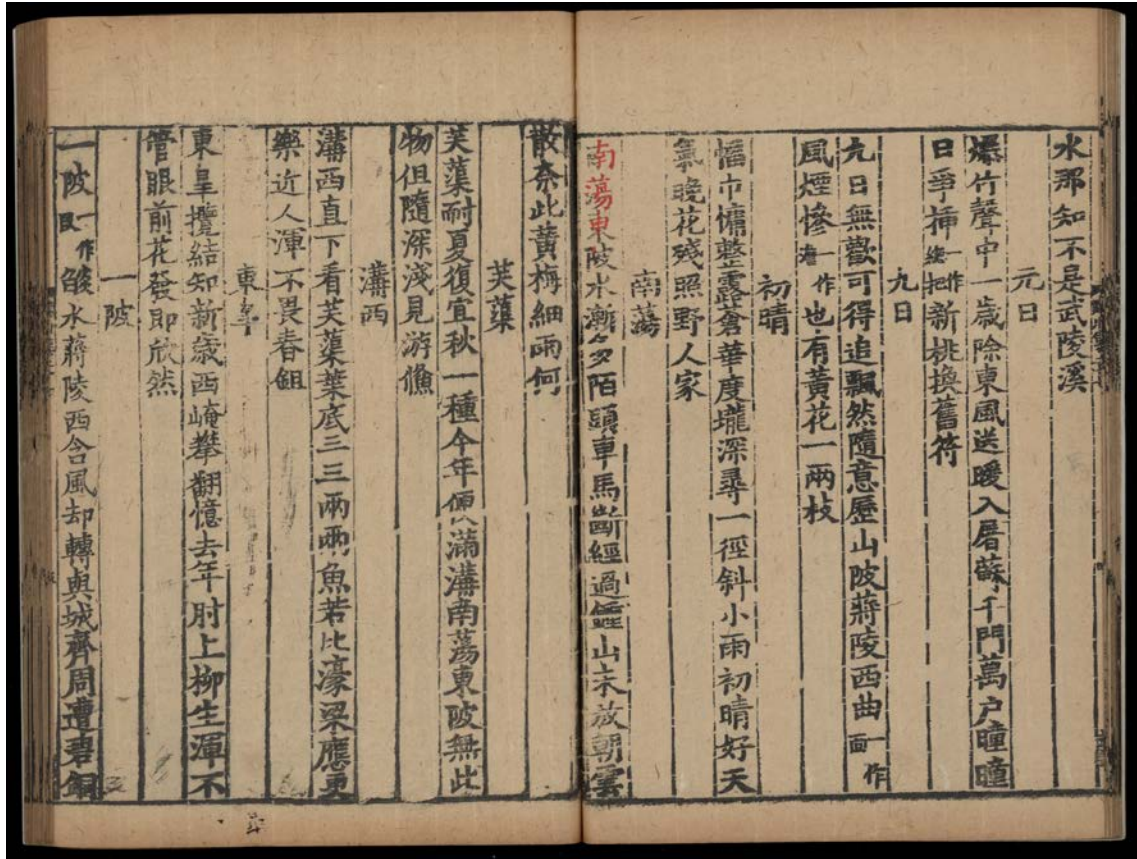 水那知不是武陵溪
元日
爆竹聲中一歲除東風送暖入屠蘇千門萬户曈曈
日爭插一作緫把新桃換舊符
九日
九日無歡可得追飄然隨意歷山陂蔣陵西曲一作面
風煙慘一作也有黃花一兩枝
初晴
幅巾慵整露蒼華度壠深尋一徑斜小雨初晴好天
氣晚花殘照野人家
南蕩
南蕩東陂水漸多陌頭車馬斷經過鍾山未放朝雲
散奈此黃梅細雨何
芙蕖
芙蕖耐夏復宜秋一種今年便滿溝南蕩東陂無此
物但隨深淺見游鯈
溝西
溝西直下看芙蕖葉底三三兩兩魚若比濠梁應更
樂近人渾不畏舂鉏
東皋
東皇攬結知新歲西崦攀翻憶去年肘上柳生渾不
管眼前花發即欣然
一陂
一陂一作水蔣陵西含風却轉與城齊周遭碧銅